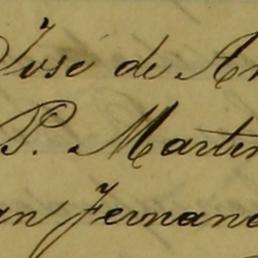 José de An
P. Martin
an Fernand